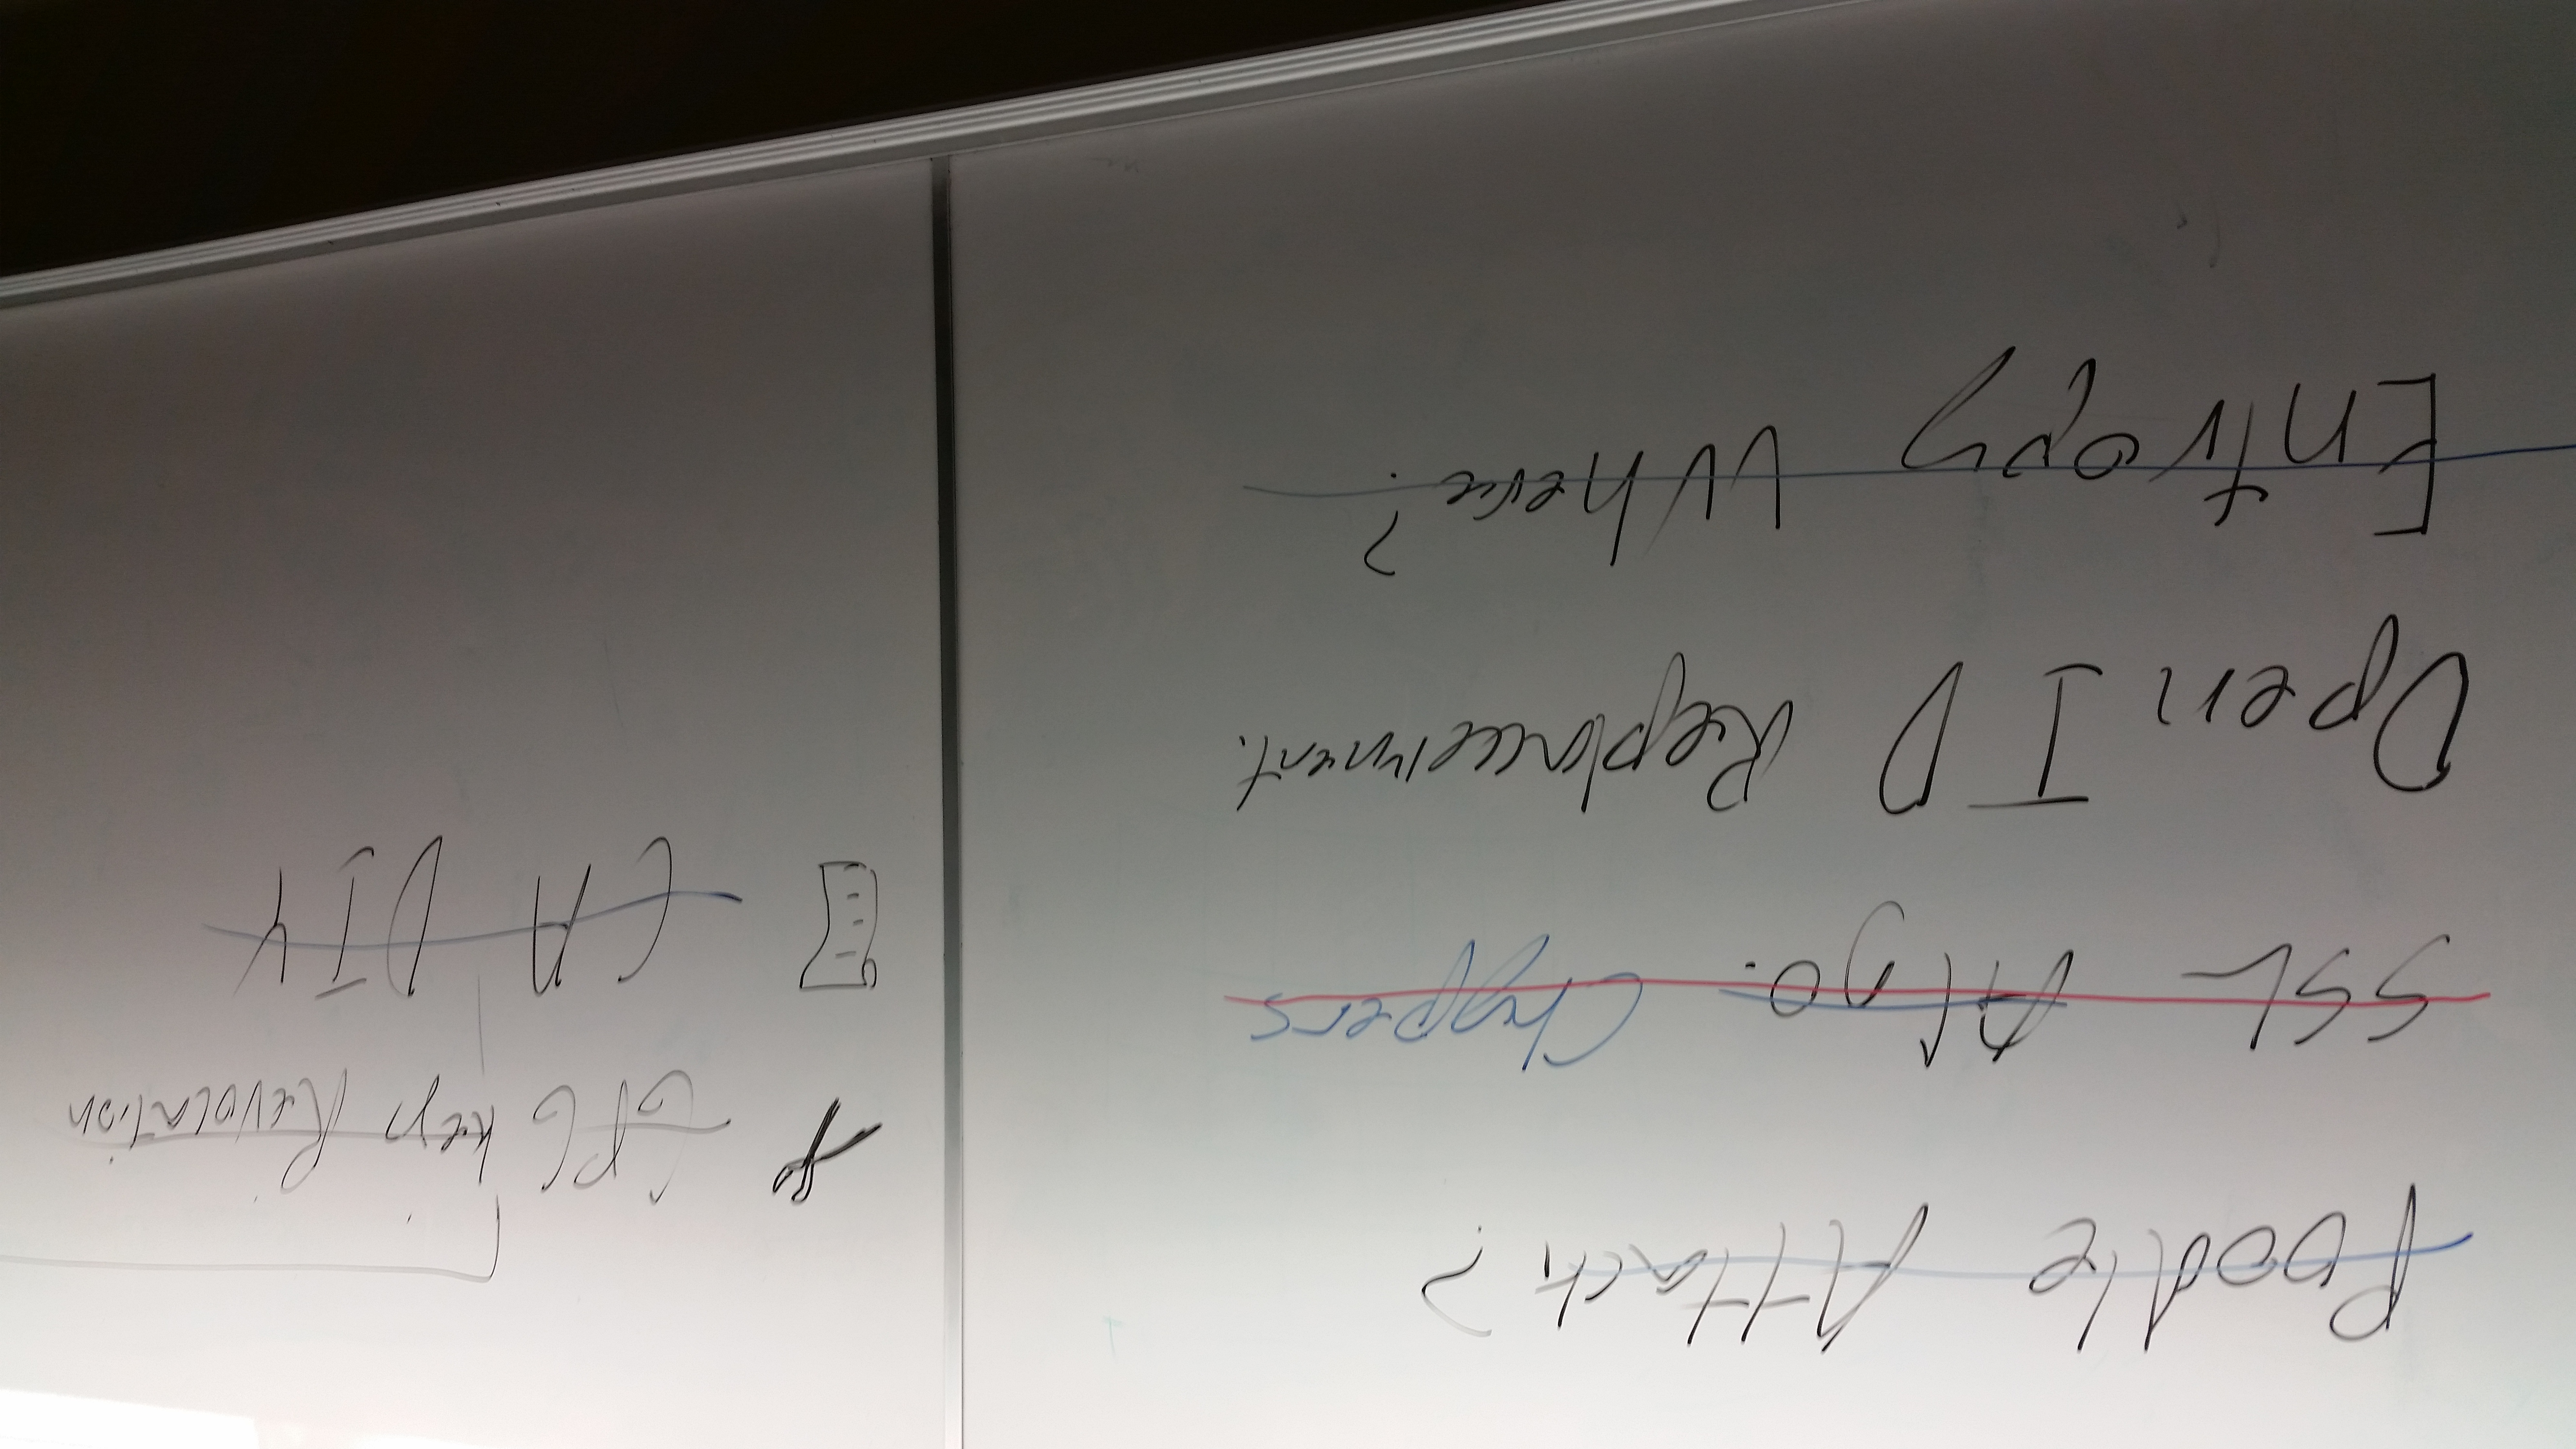 Poodle Attack?
SSL Algo. Chypers
Open ID Replacement.
Entropy Where?
GPG key Revocation
CA DIY